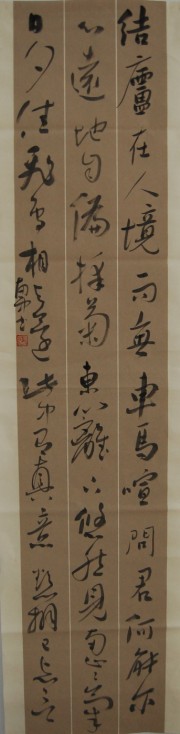 結廬在人境而無車馬喧問君何能尔
心遠地自偏採菊東籬下悠然見南山々氣
日夕佳飛鳥相與還此中有真意欲辨已忘言